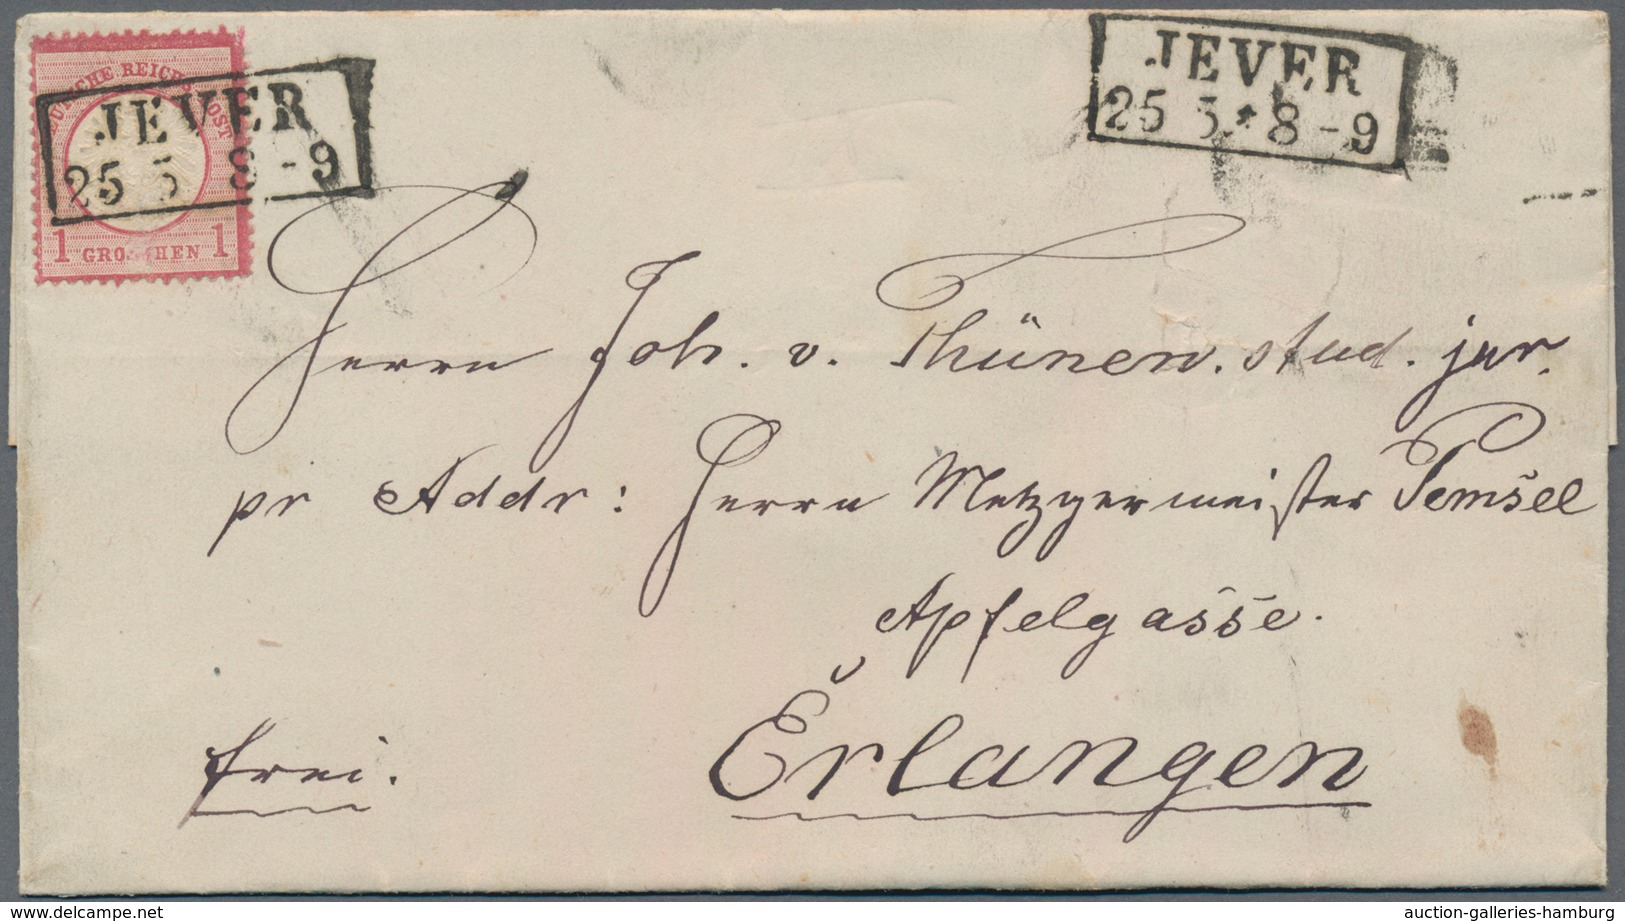 DEUTSCHE REICHS POST
1 GROSCHEN 1
JEVER
25 5 8-9
JEVER
25 5 * 8-9
Herrn Joh. v. Thünen. stud. jur.
pr Addr: Herrn Metzgermeister Temsel
Apfelgasse.
frei.
Erlangen
auction-galleries-hamburg